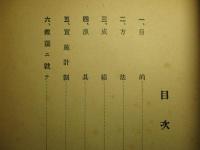 目次
一、目的
二、方法
三、成績
四、漁具
五、實施計劃
六、鰹漁ニ就テ